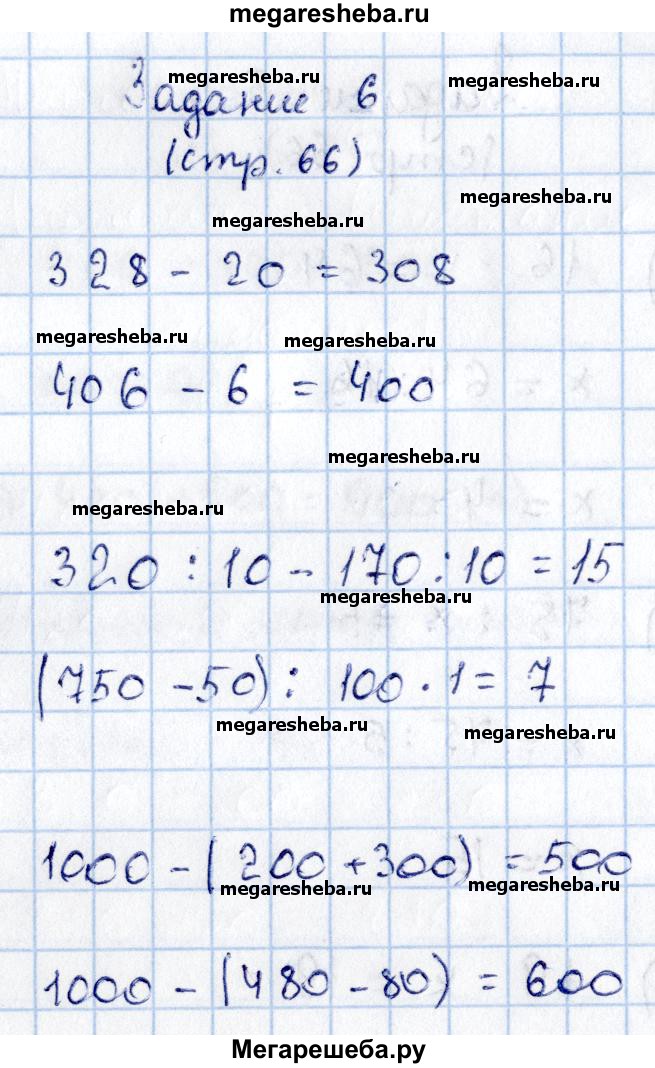 megaresheba.ru
Задание 6
megaresheba.ru
megaresheba.ru
(стр. 66)
megaresheba.ru
megaresheba.ru
328 - 20 = 308
megaresheba.ru
megaresheba.ru
406 - 6 = 400
megaresheba.ru
megaresheba.ru
320 : 10 - 170 : 10 = 15
megaresheba.ru
(750 - 50) : 100 · 1 = 7
megaresheba.ru
megaresheba.ru
1000 - (200 + 300) = 500
megaresheba.ru
megaresheba.ru
1000 - (480 - 80) = 600
Мегарешеба.ру